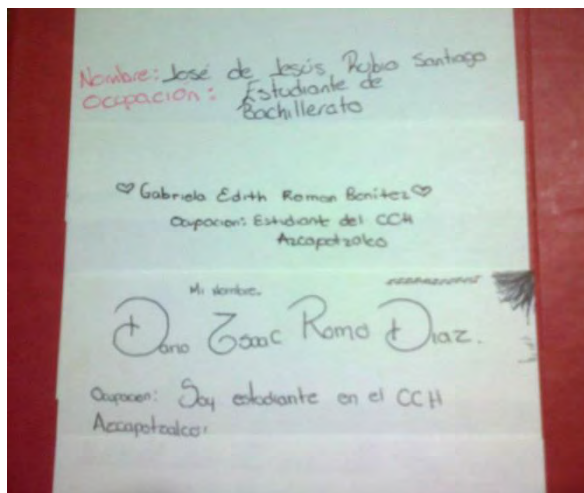 Nombre: José de Jesús Rubio Santiago
Ocupación: Estudiante de
Bachillerato
♡ Gabriela Edith Roman Benitez ♡
Ocupacion: Estudiante del CCH
Azcapotzalco
Mi nombre.
Dano Isaac Romo Diaz.
Ocupacion: Soy estudiante en el CCH
Azcapotzalco.